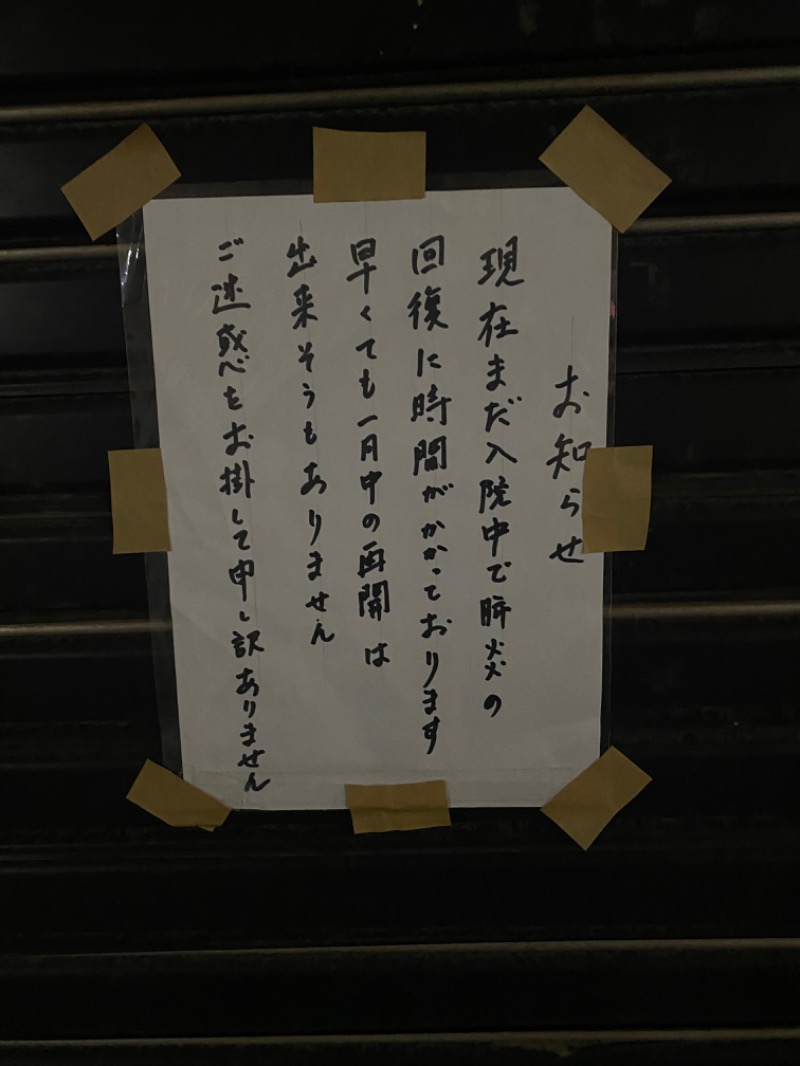 お知らせ
現在まだ入院中で炎の
回復に時間がかかっております
早くても一月中の再開は
出来そうもありません
ご迷惑をお掛して申し訳ありません